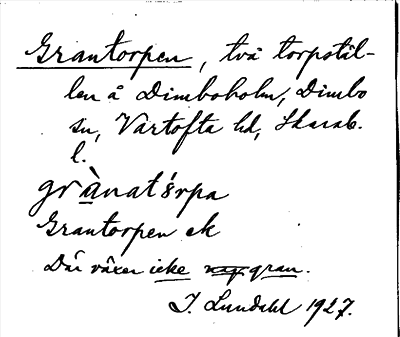 Grantorpen, två torpstäl-
len å Dimboholm, Dimbo
sn, Vartofta hd, Skarab.
l.
grànatǻrpa
Grantorpen ek
Där växer icke gran.
I. Lundahl 1927.